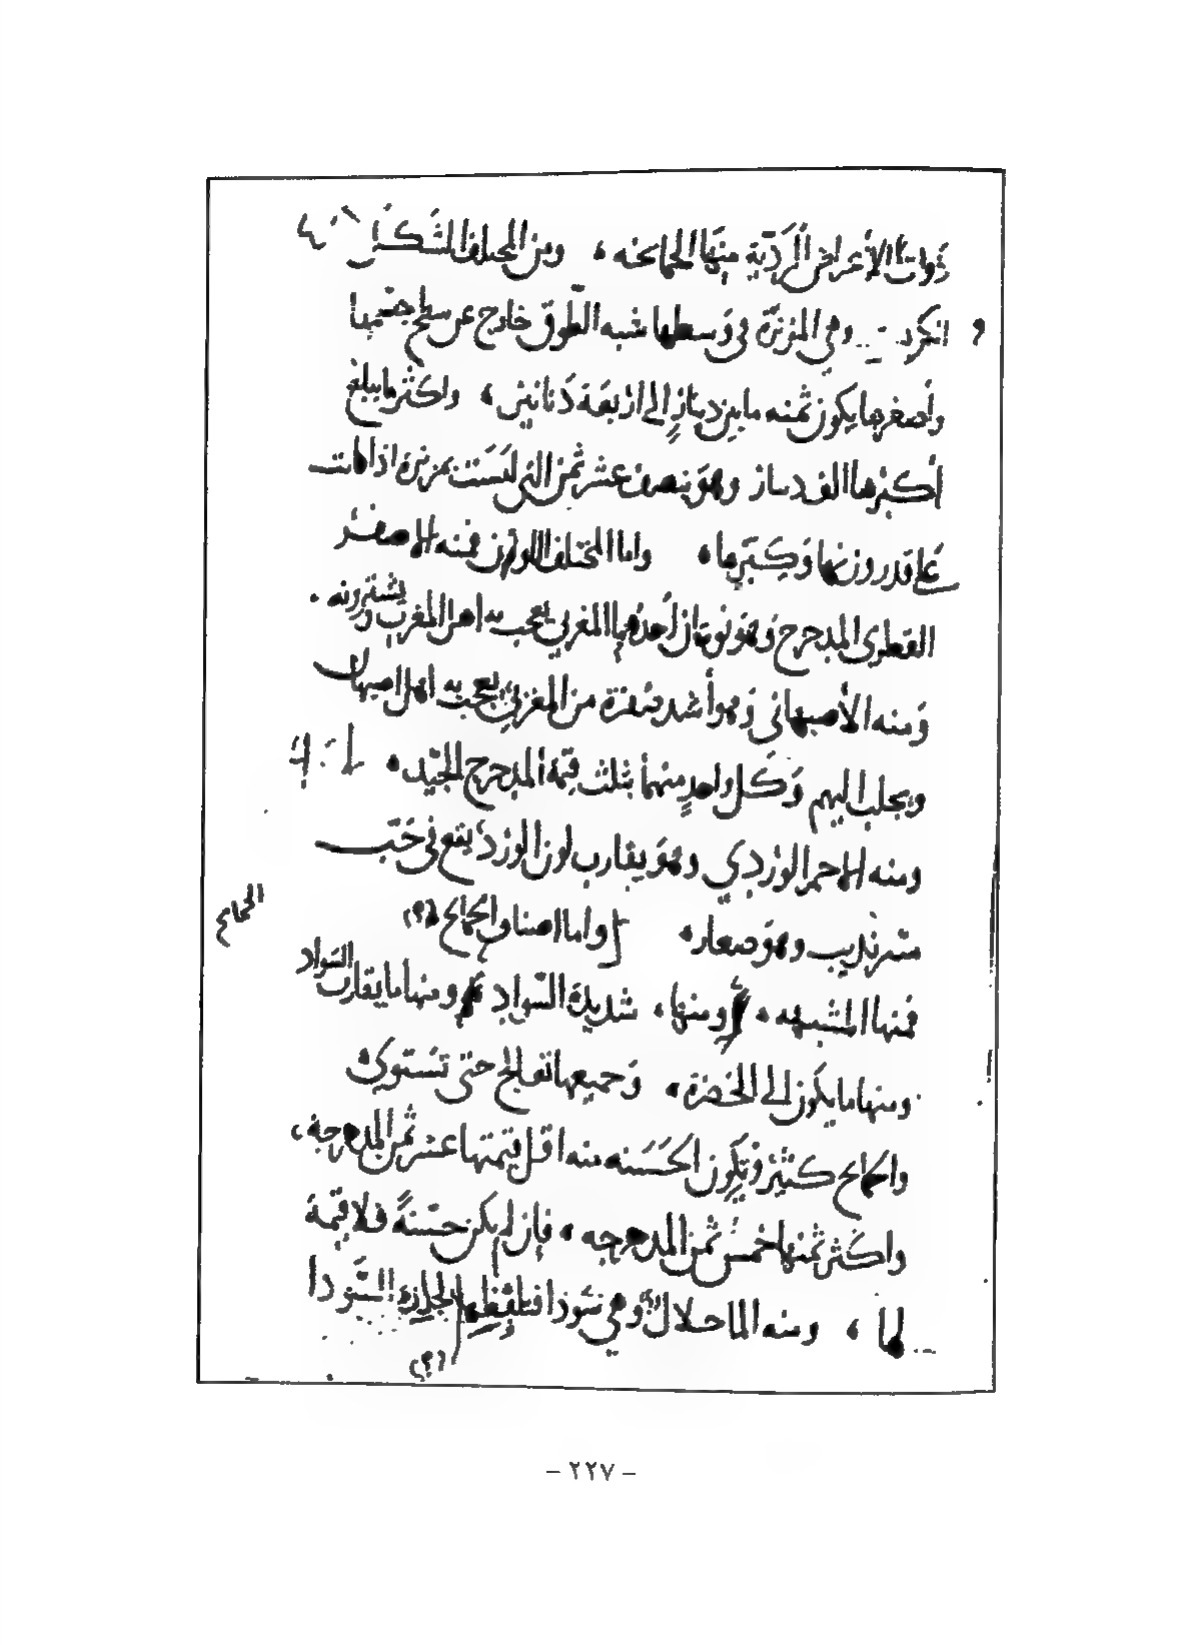 ذوات الأعراض الردية منها الجمانحه، ومن المختلف الشكل
وهي المزنرة في وسطها شبه الطوق خارج عن سطح جسمها
وأصغرها يكون ثمنه ما بين دينار إلى اربعة دنانير، واكثر ما يبلغ
أكبرها الف دينار وهو نصف عشر ثمن التي ليست بمزنرة اذا كانت
على قدر وزنها وكبرها، واما المختلف اللون فمنه الاصفر
القطري المدحرج وهو نوعان أحدهما المغربي يعجب به اهل المغرب يشترونه
ومنه الأصبهاني وهو أشد صفرة من المغربي يعجب به اهل اصبهان
ويجلب اليهم وكل واحد منهما بثلث قيمة المدحرج الجيد،
ومنه الاحمر الوردي وهو يقارب لون الورد يقع في حب
سرنديب وهو صغار، واما اصناف الجماح (؟)
الجماح
فمنها المشبهه، ومنها، شديدة السواد ومنها ما يقارب السواد
ومنها ما يكون الى الخضرة، وجميعها تعالج حتى تستوي
والجماح كثير وتكون الحسنه منه اقل قيمتها عشر ثمن المدحرجة،
واكثر ثمنها خمس ثمن المدحرجه، فإن لم يكن حسنة فلا قيمة
لها، ومنه الماحلال وهي سودا السودا
(؟)
– ٢٢٧ –